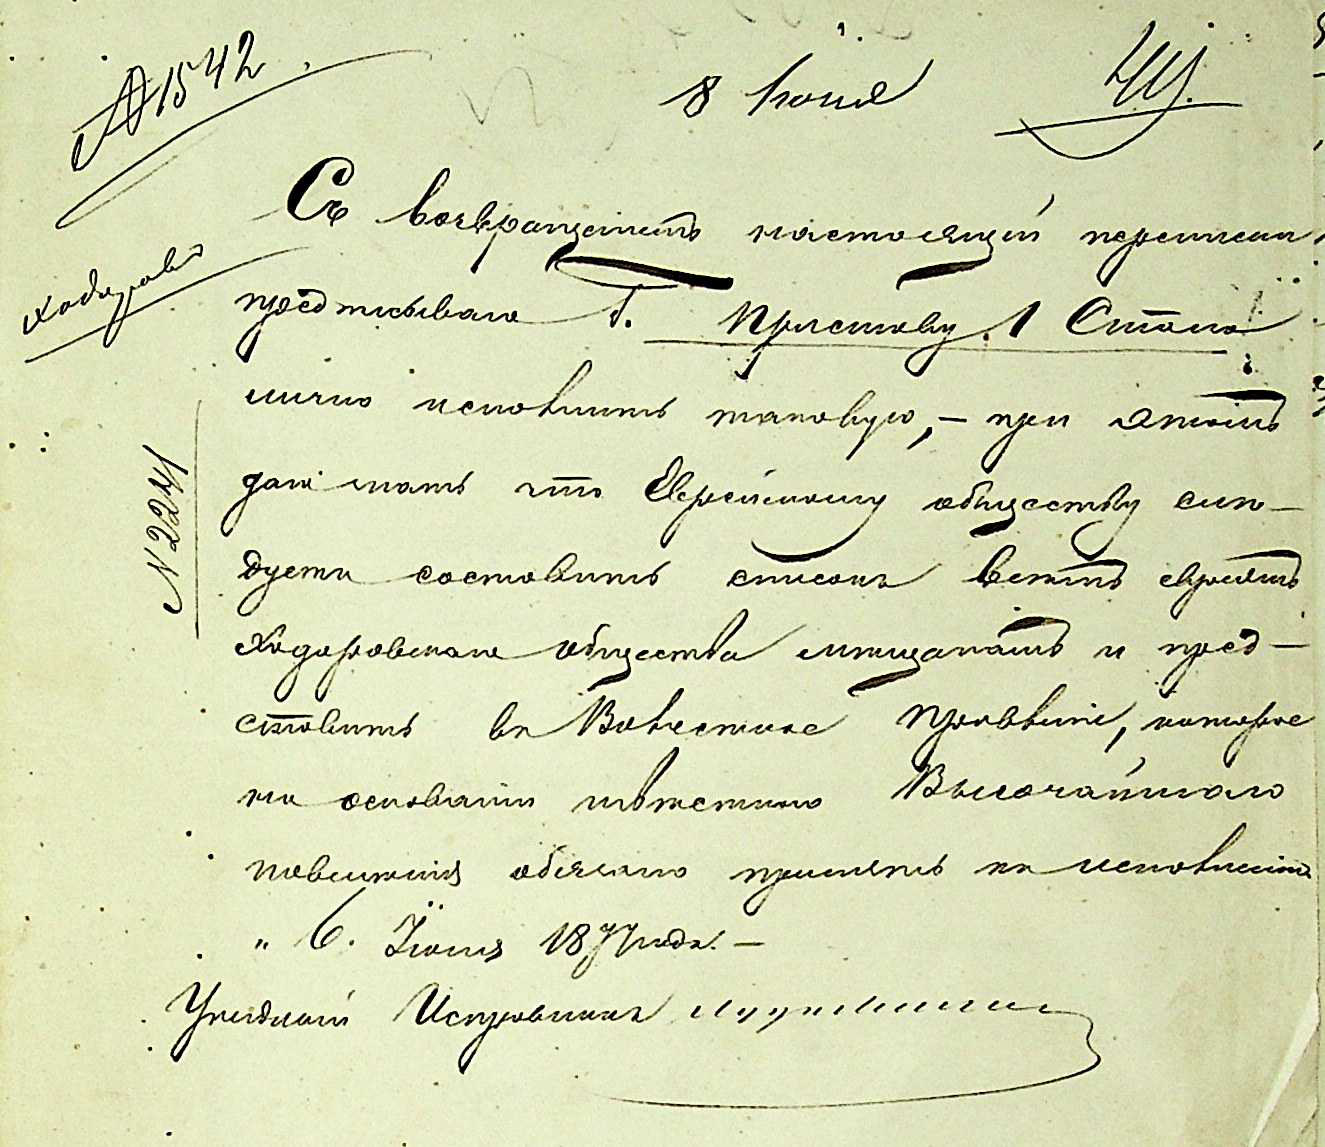 № 1542
8 Июня
Съ возвращеніемъ настоящей переписки
Ходоровъ
предписываю Г. Приставу 1 Стана
лично исполнить таковую, — при этомъ
дать знать что Еврейскому обществу слѣ—
№ 2241
дуетъ составить списокъ всѣмъ евреямъ
Ходоровскаго общества мѣщанамъ и пред—
ставить въ Волостное Правленіе, которое
на основаніи извѣстнаго Высочайшаго
повелѣнія обязано принять къ исполненію
" 6. Іюня 1877 года. —
Уѣздный Исправникъ